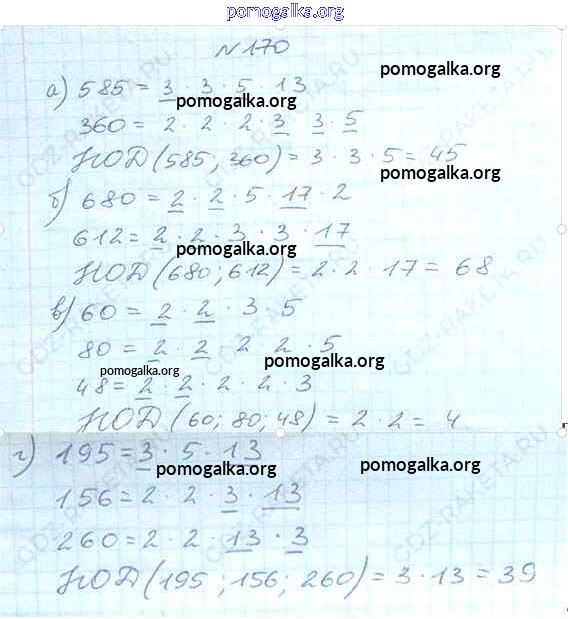 pomogalka.org
№170
а) 585 = 3 · 3 · 5 · 13
pomogalka.org
pomogalka.org
360 = 2 · 2 · 2 · 3 · 3 · 5
НОД (585; 360) = 3 · 3 · 5 = 45
pomogalka.org
б) 680 = 2 · 2 · 5 · 17 · 2
612 = 2 · 2 · 3 · 3 · 17
pomogalka.org
НОД (680; 612) = 2 · 2 · 17 = 68
в) 60 = 2 · 2 · 3 · 5
80 = 2 · 2 · 2 · 2 · 5
pomogalka.org
pomogalka.org
48 = 2 · 2 · 2 · 2 · 3
НОД (60; 80; 48) = 2 · 2 = 4
г) 195 = 3 · 5 · 13
pomogalka.org
pomogalka.org
156 = 2 · 2 · 3 · 13
260 = 2 · 2 · 13 · 3
НОД (195; 156; 260) = 3 · 13 = 39
GDZ-RAKETA.RU